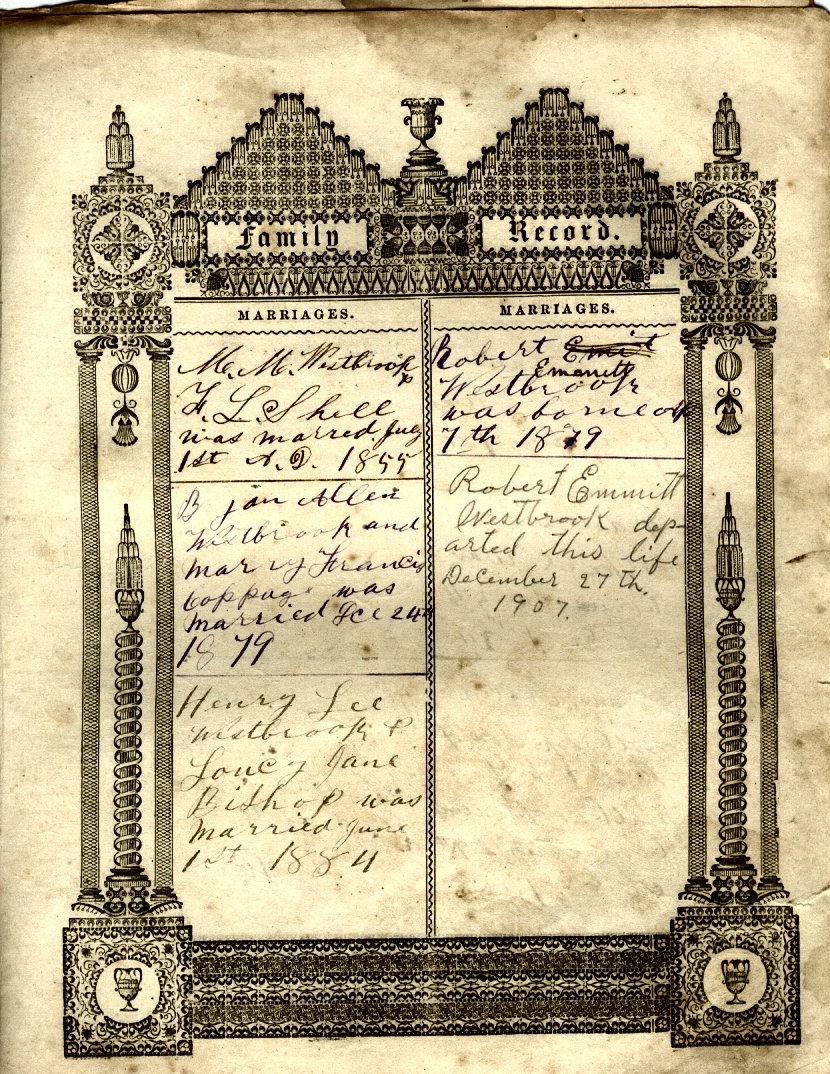 Family Record.
MARRIAGES.
M. M. Westbrook
&
F. L. Shell
was marred July
1st A.D. 1855
B jan Allen
Westbrook and
marry Francis
Coppage was
married Dec 24th
1879
Henry Lee
Westbrook &
Loucy Jane
Bishop was
married June
1st 1884
MARRIAGES.
Robert Emit
Emmitt
Westbrook
was borne
7th 1879
Robert Emmitt
Westbrook dep-
arted this life
December 27th.
1907.